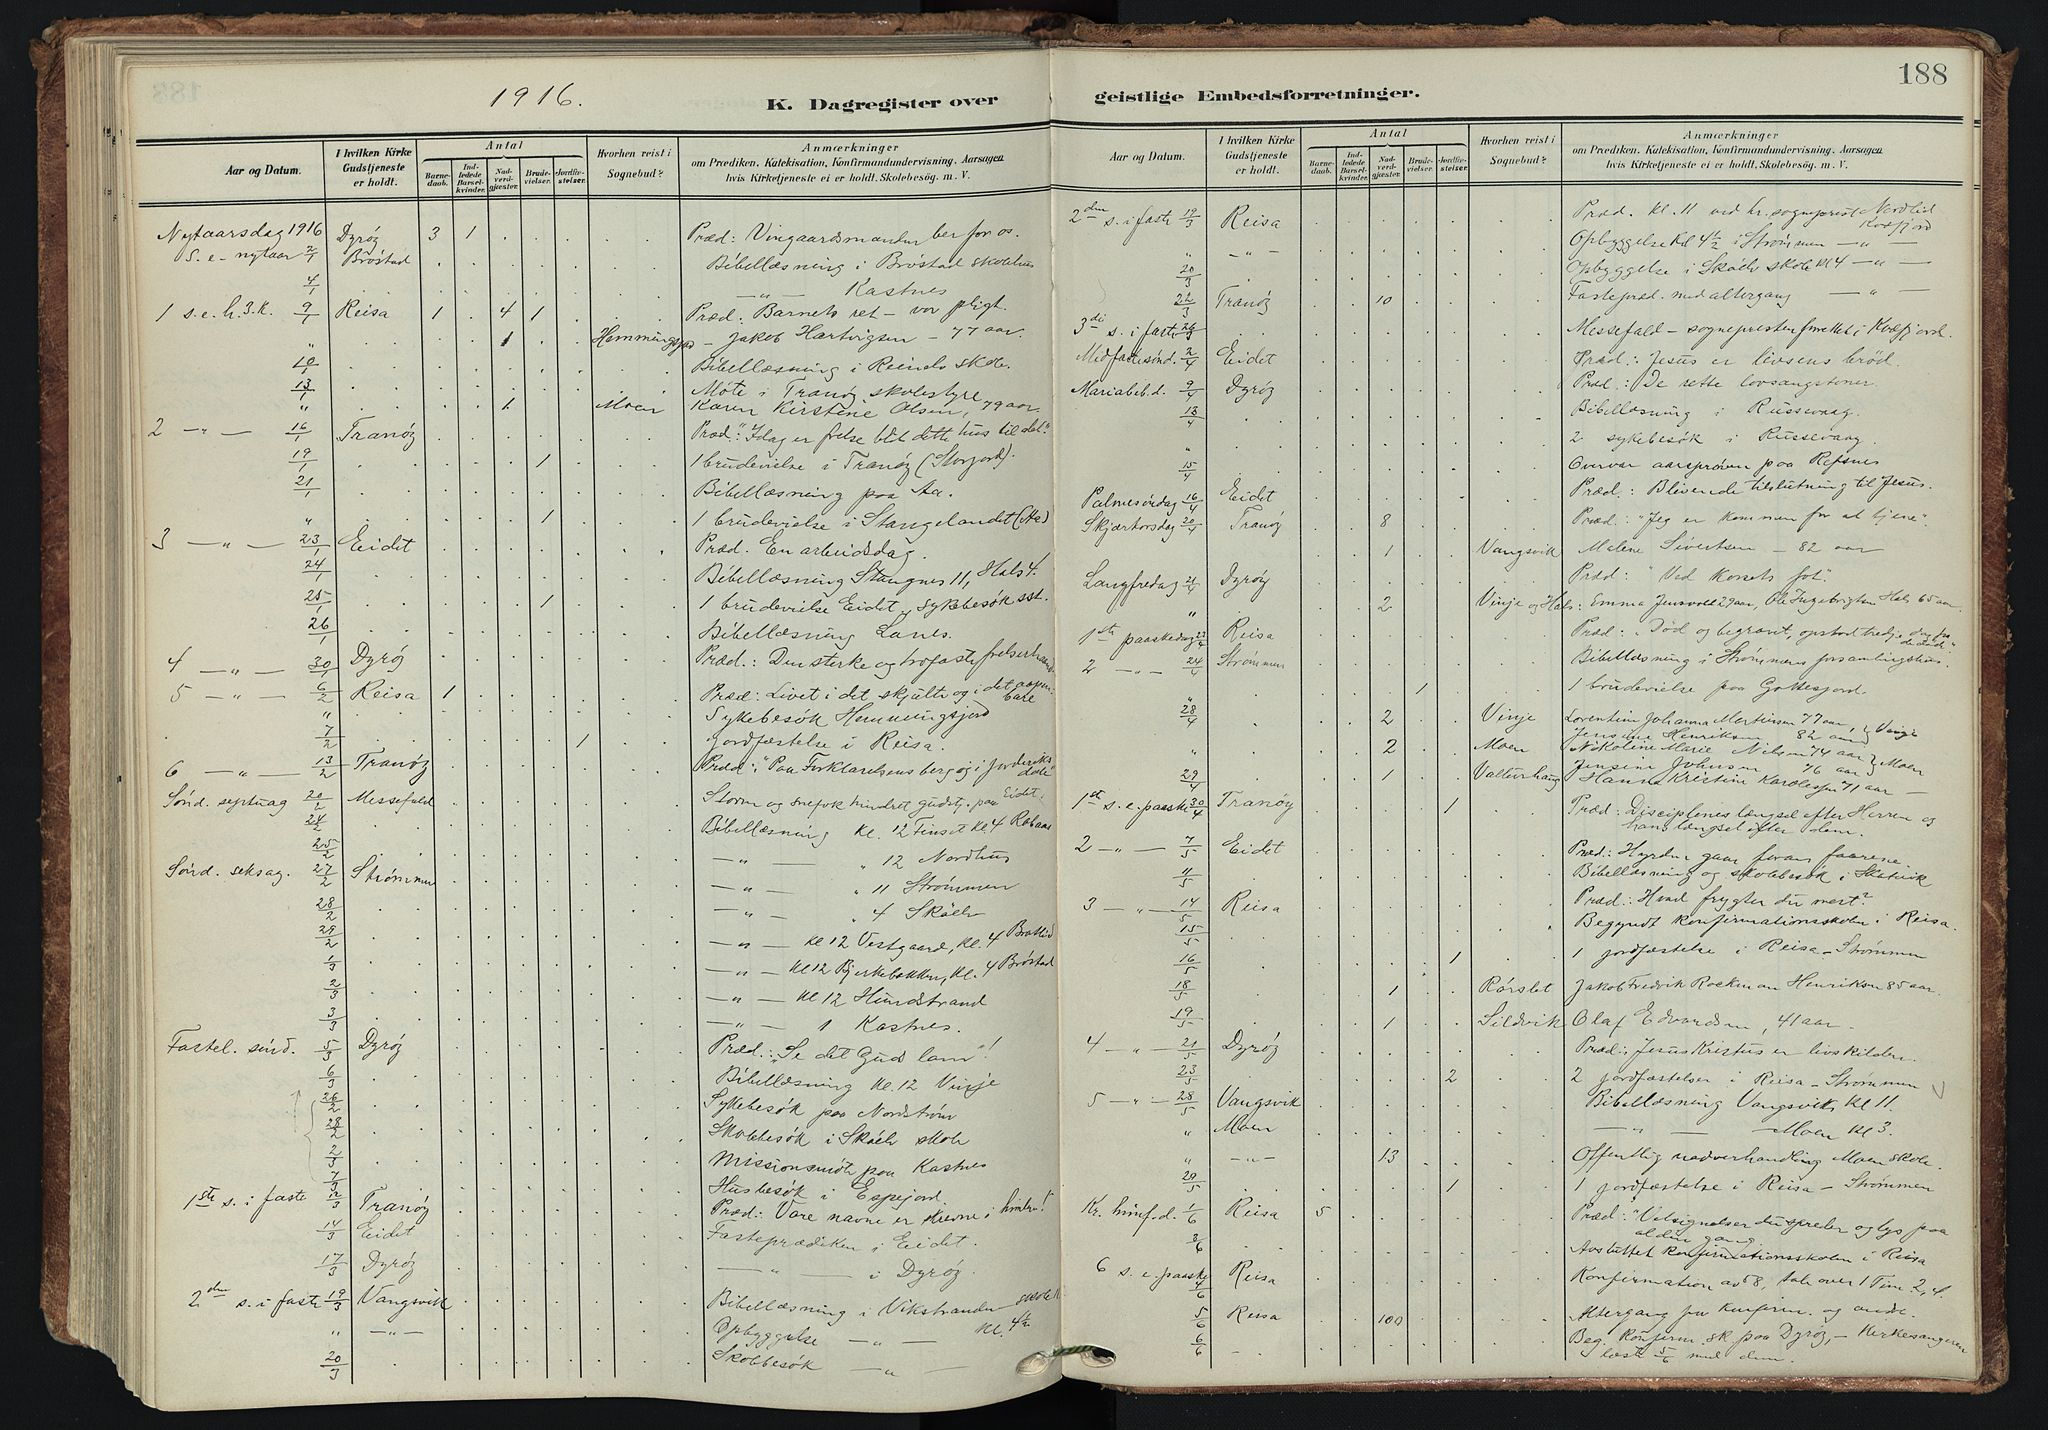 1916.
K. Dagregister over
Aar og Datum.
I hvilken Kirke Gudstjeneste er holdt.
Antal
Barnedaab.
Indledede Barselkvinder.
Nadverdgjester.
Brudevielser.
Jordfæstelser.
Hvorhen reist i Sognebud?
Anmærkninger
om Prædiken, Katekisation, Konfirmandundervisning, Aarsagen
hvis Kirketjeneste ei er holdt, Skolebesög. m. V.
Nytaarsdag 1916 Dyröy 3 1 Præd: Vingaardsmanden ber for os.
S. e. nytaar 2/1 Bröstad Bibellæsning i Bröstad skolehus
4/1 —"— Kastnes
1 s. e. h. 3. k. 9/1 Reisa 1 4 1 Præd: Barnets ret – vor pligt.
" 1 Hemmingsjord – Jakob Hartvigsen – 77 aar.
10/1 Bibellæsning i Reinels skole.
13/1 Möte i Tranöy skolestyre
" 1 Moen Karen Kirstine Olsen, 79 aar.
2 —"— 16/1 Tranöy Præd: "Idag er frelse blit dette hus til del".
19/1 1 1 brudevielse i Tranöy (Storjord).
21/1 Bibellæsning paa Aa.
" 1 1 brudevielse i Stangelandet (Aa)
3 —"— 23/1 Eidet Præd. En arbeidsdag.
24/1 Bibellæsning Stangnes 11, Hals 4.
25/1 1 1 brudevielse Eidet, sykebesök sst.
26/1 Bibellæsning Lanes.
4 —"— 30/1 Dyröy Præd: Den sterke og trofaste frelserhaand
5 —"— 6/2 Reisa 1 Præd: Livet i det skjulte og i det aapenbare
" Sykebesök Hemmingsjord
7/2 1 Jordfæstelse i Reisa.
6 —"— 13/2 Tranöy Præd: "Paa Forklarelsens berg og i Jorderiks dale"
Sönd. septuag 20/2 Messefald Storm og snefok hindret gudstj. paa Eidet.
24/2 Bibellæsning kl. 12 Finset kl 4
25/2 —"— " 12 Nordhus
Sönd. seksag. 27/2 Strömmen —"— " 11 Strömmen
28/2 —"— " 4 Sköelv
29/2 —"— kl 12 Vestgaard, kl. 4 Brattlid
1/3 —"— kl 12 Bjerkebakken, kl. 4 Bröstad
2/3 —"— kl 12 Hundstrand
3/3 —"— 1 Kastnes.
Fastel. sönd. 5/3 Dyröy Præd.: "Se det Guds lam"!
6/3 Bibellæsning kl. 12 Vinje
26/2 Sykebesök paa Nordström
28/2 Skolebesök i Sköelv skole
2/3 Missionsmöte paa Kastnes
7/3 Husbesök i Espejord.
1ste s. i faste 12/3 Tranöy Præd.: Vare navne er skrevne i himlen!
14/3 Eidet Fasteprædiken i Eidet.
17/3 Dyröy —"— i Dyröy.
2den s. i faste 19/3 Vangsvik Bibellæsning i Vikstranden skole
" —"— Opbyggelse —"— kl. 4 1/2
20/3 Skolbesök —"—
188
geistlige Embedsforretninger.
Aar og Datum.
I hvilken Kirke Gudstjeneste er holdt.
Antal
Barnedaab.
Indledede Barselkvinder.
Nadverdgjester.
Brudevielser.
Jordfæstelser.
Hvorhen reist i Sognebud?
Anmærkninger
om Prædiken, Katekisation, Konfirmandundervisning, Aarsagen
hvis Kirketjeneste ei er holdt, Skolebesög. m. V.
2den s. i faste 19/3 Reisa Præd. kl. 11 ved hr. sogneprest Nordlid Kvæfjord
" —"— Opbyggelse kl 4 1/2 i Strömmen —"—
20/3 Opbyggelse i Sköelv skole kl 4 —"—
22/3 Tranöy 10 Fastepræd. med altergang —"—
3die s. i faste 26/3 Messefald – sognepresten forrettet i Kvæfjord.
Midfastesönd. 2/4 Eidet Præd.: Jesus er livsens bröd.
Mariabeb. d. 9/4 Dyröy Præd.: De rette lovsangstoner.
13/4 Bibellæsning i Russevaag.
" 2 sykebesök i Russevaag.
15/4 Overvar aarspröven paa Refsnes
Palmesöndag 16/4 Eidet Præd.: Blivende tilslutning til Jesus.
Skjærtorsdag 20/4 Tranöy 8 Præd.: "Jeg er kommen for at tjene".
1 Vangsvik Malene Sivertsen – 82 aar
Langfredag 21/4 Dyröy Præd: "Ved korsets fot".
" 2 Vinje og Hals: Emma Jensvold 29 aar, Ole Ingebrigtsen Hals 65 aar.
1ste paaskedag 23/4 Reisa Præd: "Död og begravet, opstod tredje dag fra de döde"
2 —"— 24/4 Strömmen Bibellæsning i Strömmens forsamlingshus.
" 1 1 brudevielse paa Gottesjord.
28/4 2 Vinje Lorentine Johanna Martinsen 77 aar, Jensine Henriksen 82 aar } Vinje
" 2 Moen Nikoline Marie Nilsen 74 aar, Jensine Johnsen 76 aar } Moen
29/4 1 Valturhaug Hanna Kristine Karolessen 71 aar –
1st s. e. paaske 30/4 Tranöy 1 Præd: Disciplenes længsel efter Herren og
hans længsel efter dem.
2 —"— 7/5 Eidet Præd: Hyrden gaar foran faarene.
11/5 Bibellæsning og skolebesök i Skatvik
3 —"— 14/5 Reisa Præd: Hvad frygter du mest?
15/5 Begyndt konfirmationsskolen i Reisa.
16/5 1 1 jordfæstelse i Reisa – Strömmen
18/5 1 Rörslet Jakob Fredrik Rockman Henriksen 85 aar.
19/5 1 Sildvik Olaf Edvardsen, 41 aar.
4 —"— 21/5 Dyröy Præd: Jesus Kristus er livskilden.
23/5 2 2 jordfæstelser i Reisa – Strömmen
5 —"— 28/5 Vangsvik Bibellæsning Vangsvik kl 11.
" Moen —"— Moen kl 3.
" —"— 13 Offentlig nadverhandling Moen skole.
29/5 1 1 jordfæstelse i Reisa – Strömmen
Kr. himf. d. 1/6 Reisa 5 Præd: "Velsignelser du spreder og lys paa
al din gang.
3/6 Avsluttet konfirmationsskolen i Reisa
6 s. e. paaske 4/6 Reisa Konfirmation av 58, tale over 1 Tim 2, 4.
5/6 Reisa 100 Altergang for konfirm. og andre.
6/6 Beg. konfirm. sk. paa Dyröy, – Kirkesangeren
læste 5/6 med dem.